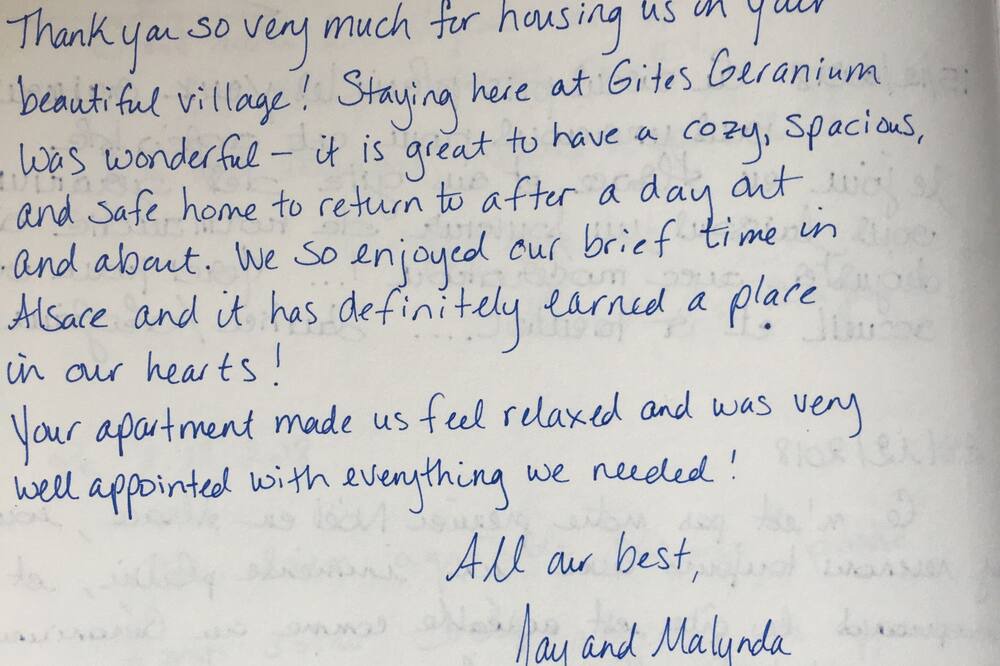 Thank you so very much for housing us in your
beautiful village! Staying here at Gites Geranium
was wonderful – it is great to have a cozy, spacious,
and safe home to return to after a day out
and about. We so enjoyed our brief time in
Alsace and it has definitely earned a place
in our hearts!
Your apartment made us feel relaxed and was very
well appointed with everything we needed!
All our best,
and Malynda